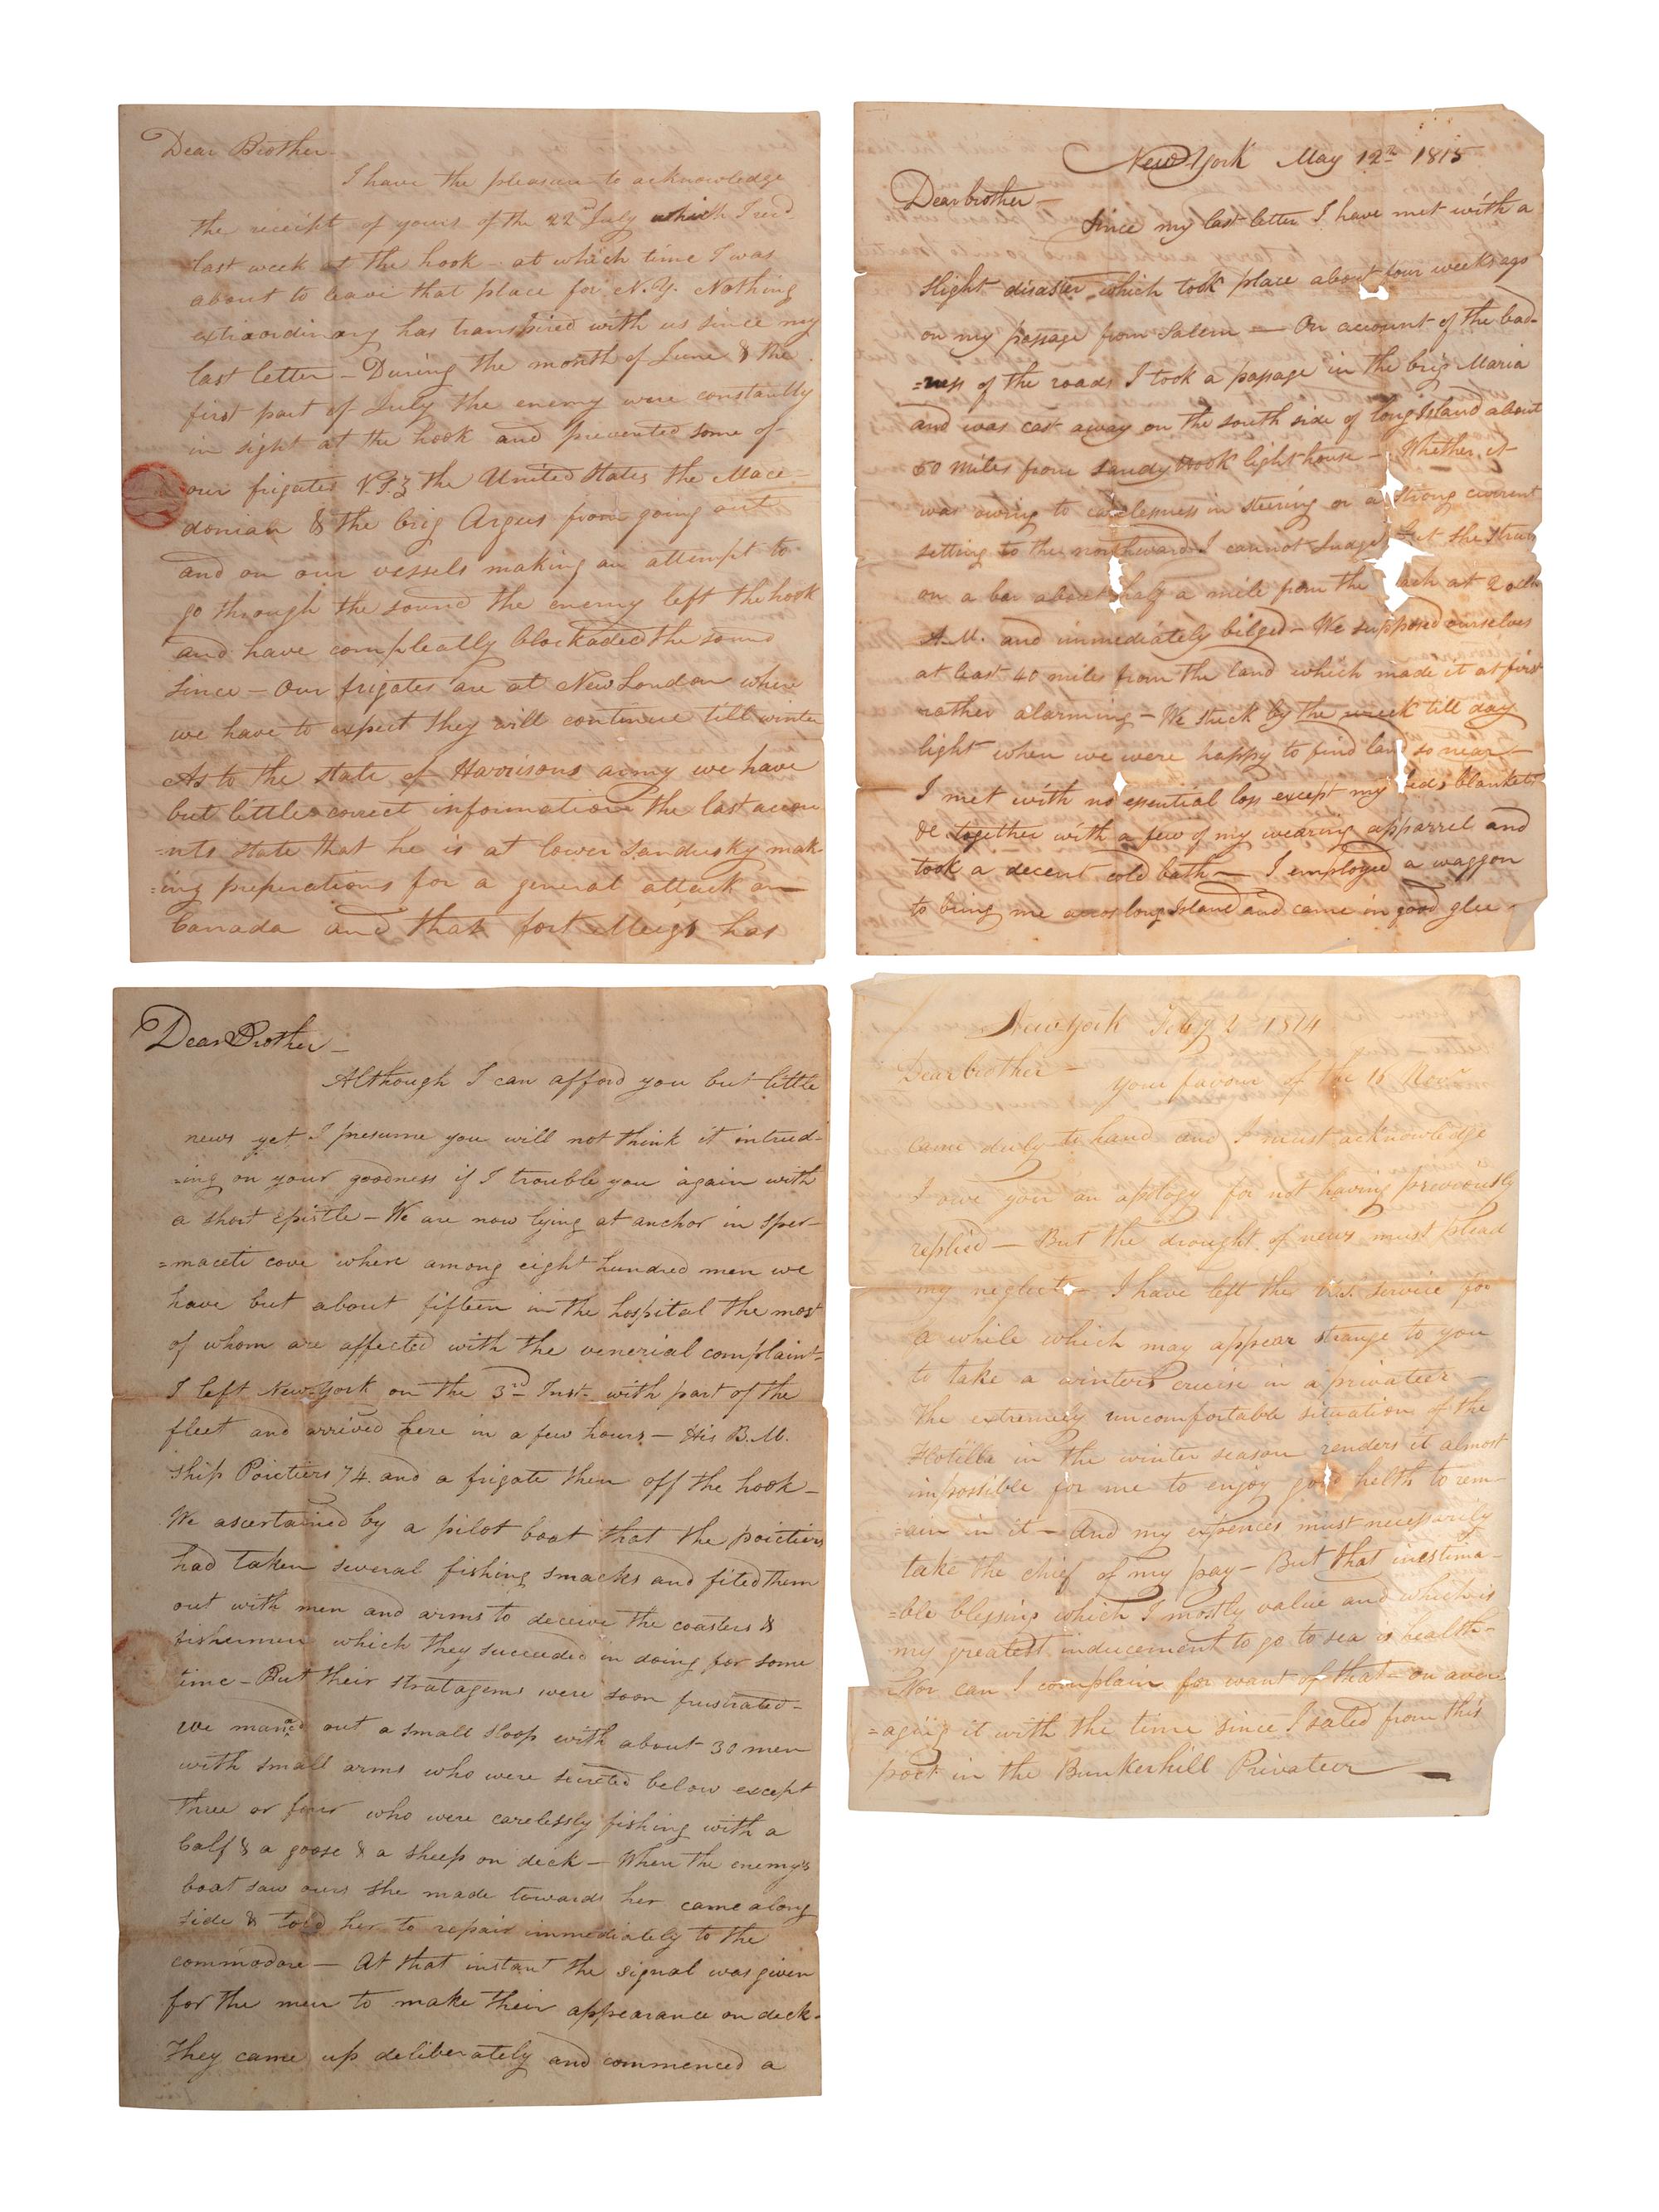 Dear Brother
I have the pleasure to acknowledge
the receipt of yours of the 22d July which I recd
last week at the hook at which time I was
about to leave that place for N.Y. Nothing
extraordinary has transpired with us since my
last letter – During the month of June & the
first part of July the enemy were constantly
in sight at the hook and prevented some of
our frigates V.I.Z the United States the Mace-
donian & the brig Argus from going out
and on our vessels making an attempt to
go through the sound the enemy left the hook
and have compleatly blockaded the sound
since – Our frigates are at New London where
we have to expect they will continue till winter
As to the state of Harrisons army we have
but little correct information the last accou
-nts state that he is at lower Sandusky mak-
=ing preperations for a general attack on
Canada and that fort Meigs has
New York May 12th 1815
Dear brother –
Since my last letter I have met with a
slight disaster which took place about four weeks ago
on my passage from Salem – On account of the bad-
=ness of the roads I took a passage in the brig Maria
and was cast away on the south side of long Island about
60 miles from Sandy Hook light house – Whether it
was owing to carelessness in steering or a strong current
setting to the northward I cannot Judge but she struck
on a bar about half a mile from the each at 2 oclk
A.M. and immediately bilged – We supposed ourselves
at least 40 miles from the land which made it at first
rather alarming – We stuck by the wreck till day
light when we were happy to find land so near –
I met with no essential loss except my beds blankets
&c together with a few of my wearing apparrel and
took a decent cold bath – I employed a waggon
to bring me across long Island and came in good glee –
Dear Brother –
Although I can afford you but little
news yet I presume you will not think it intrud-
=ing on your goodness if I trouble you again with
a short epistle – We are now lying at anchor in sper-
=maceti cove where among eight hundred men we
have but about fifteen in the hospital the most
of whom are affected with the venerial complaint –
I left New-York on the 3rd Inst. with part of the
fleet and arrived here in a few hours – His B.M.
ship Poictiers 74 and a frigate then off the hook –
We ascertained by a pilot boat that the poictiers
had taken several fishing smacks and fited them
out with men and arms to deceive the coasters &
fishermen which they succeeded in doing for some
time – But their stratagems were soon frustrated –
We mann out a small sloop with about 30 men
with small arms who were secreted below except
three or four who were carelessly fishing with a
Calf & a goose & a sheep on deck – When the enemy's
boat saw ours she made towards her came along
side & told her to repair immediately to the
commodore – At that instant the signal was given
for the men to make their appearance on deck.
They came up deliberately and commenced a
New York Feby 2 1814
Dear brother –
Your favour of the 16 Novr
came duly to hand and I must acknowledge
I owe you an apology for not having previously
replied – But the drought of news must plead
my neglect – I have left the U.S. Service for
a while which may appear strange to you
to take a winters cruise in a privateer –
The extremely uncomfortable situation of the
Flotilla in the winter season renders it almost
impossible for me to enjoy good helth to rem-
=ain in it – And my expences must necessarily
take the chief of my pay – But that inestima-
=ble blessing which I mostly value and which is
my greatest inducement to go to sea is health –
Nor can I complain for want of that – on aver
=aging it with the time since I saled from this
port in the Bunkerhill Privateer –